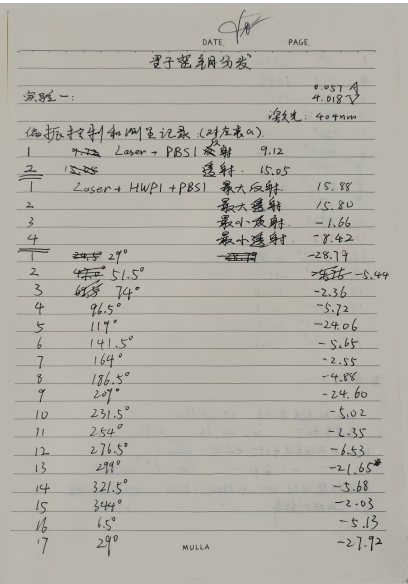 DATE. PAGE.
量子密钥分发
0.057 A
实验一: 4.018 V
激光: 404nm
偏振控制和测量记录 (对应表a)
1 Laser + PBS1 反射 9.12
2 透射 15.05
1 Laser + HWP1 + PBS1 最大反射 15.88
2 最大透射 15.80
3 最小反射 -1.66
4 最小透射 -8.42
1 29° -28.79
2 51.5° -5.44
3 74° -2.36
4 96.5° -5.72
5 119° -24.06
6 141.5° -5.65
7 164° -2.55
8 186.5° -4.88
9 209° -24.60
10 231.5° -5.02
11 254° -2.35
12 276.5° -6.53
13 299° -21.65
14 321.5° -5.68
15 344° -2.03
16 6.5° -5.13
17 29° -27.92
MULLA